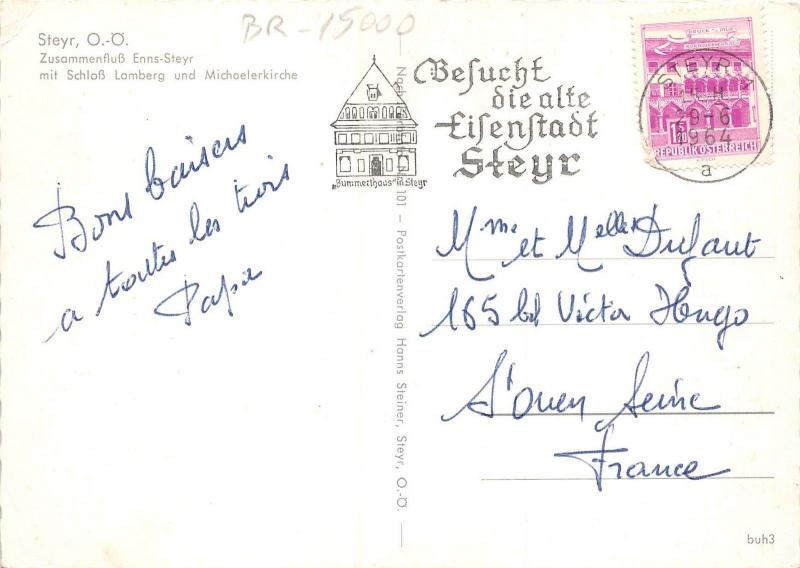 BR-15000
Steyr, O.-Ö.
Zusammenfluß Enns-Steyr
mit Schloß Lamberg und Michaelerkirche
Bons baisers
a toutes les trois
Papa
„Bummerlhaus" in Steyr
Besucht
die alte
Eisenstadt
Steyr
BRUCK a.d. MUR
KORNMESSERHAUS
S 1.20
REPUBLIK ÖSTERREICH
STEYR 1
29-6
1964
a
101 – Postkartenverlag Hanns Steiner, Steyr, O.-Ö.
Mme et Melles Dufaut
165 bd Victor Hugo
St Ouen Seine
France
buh3